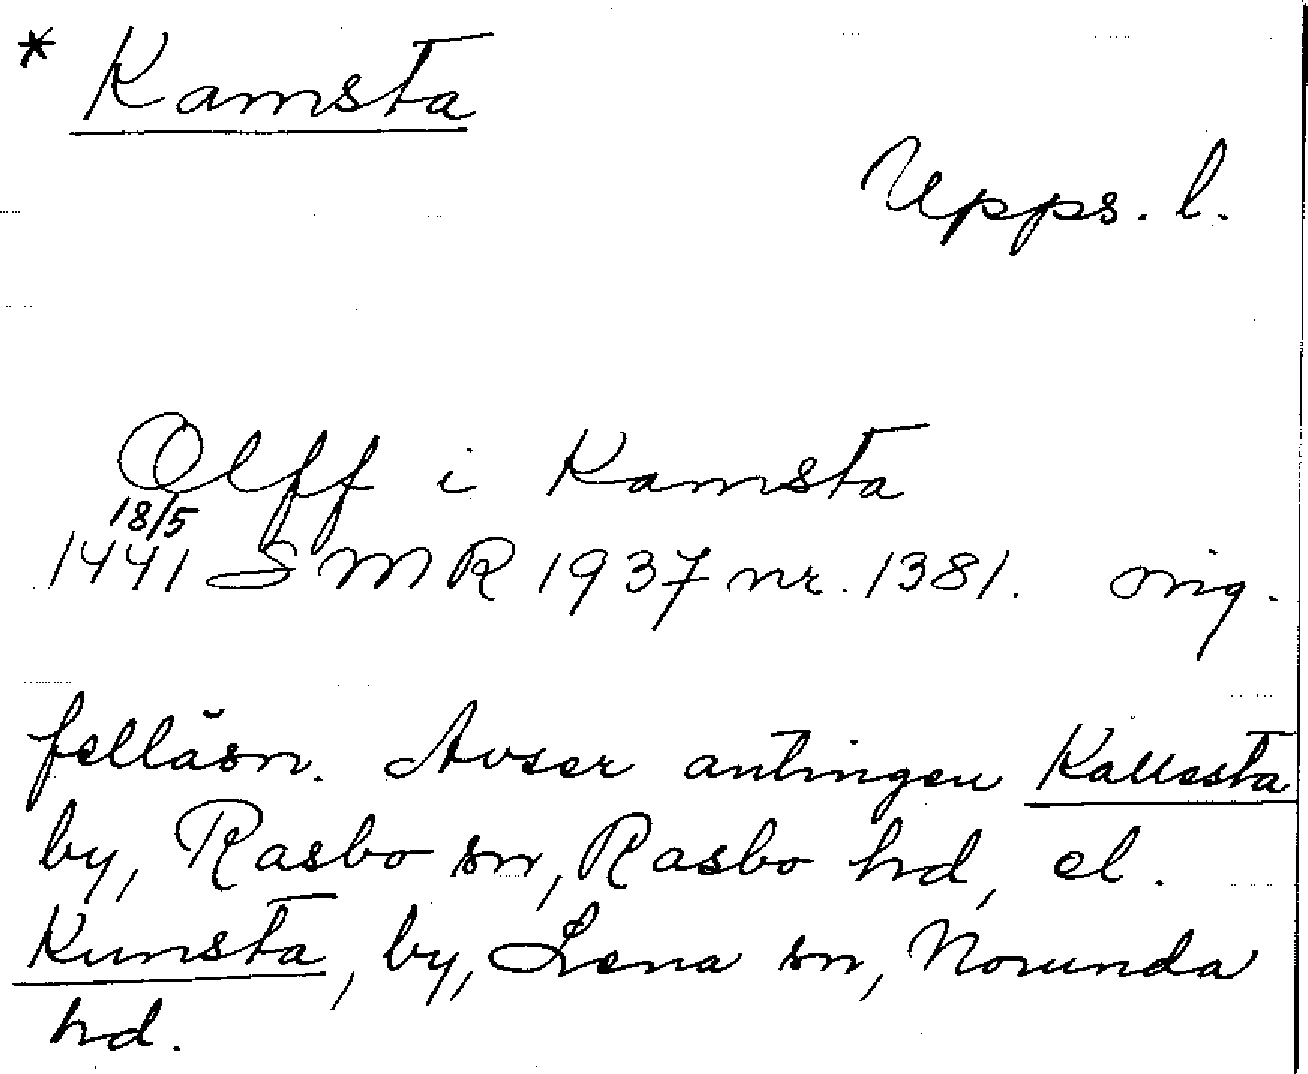 * Kamsta
Upps. l.
Olff i Kamsta
18/5
1441 SMR 1937 nr. 1381. orig.
felläsn. Avser antingen Kallesta
by, Rasbo sn, Rasbo hd, el.
Kumsta, by, Lena sn, Norunda
hd.